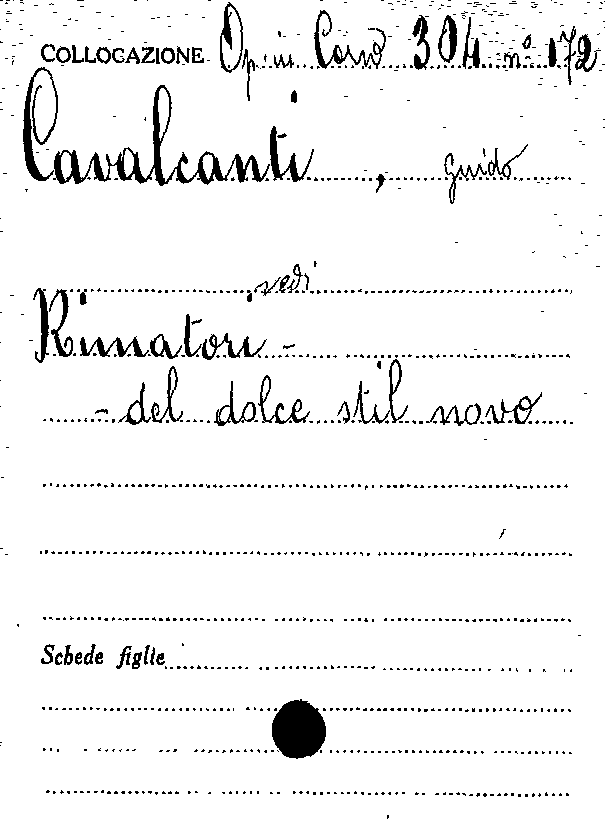 COLLOCAZIONE Op. in Corso 304 n° 172
Cavalcanti, guido
vedi
Rimatori -
- del dolce stil novo
Schede figlie